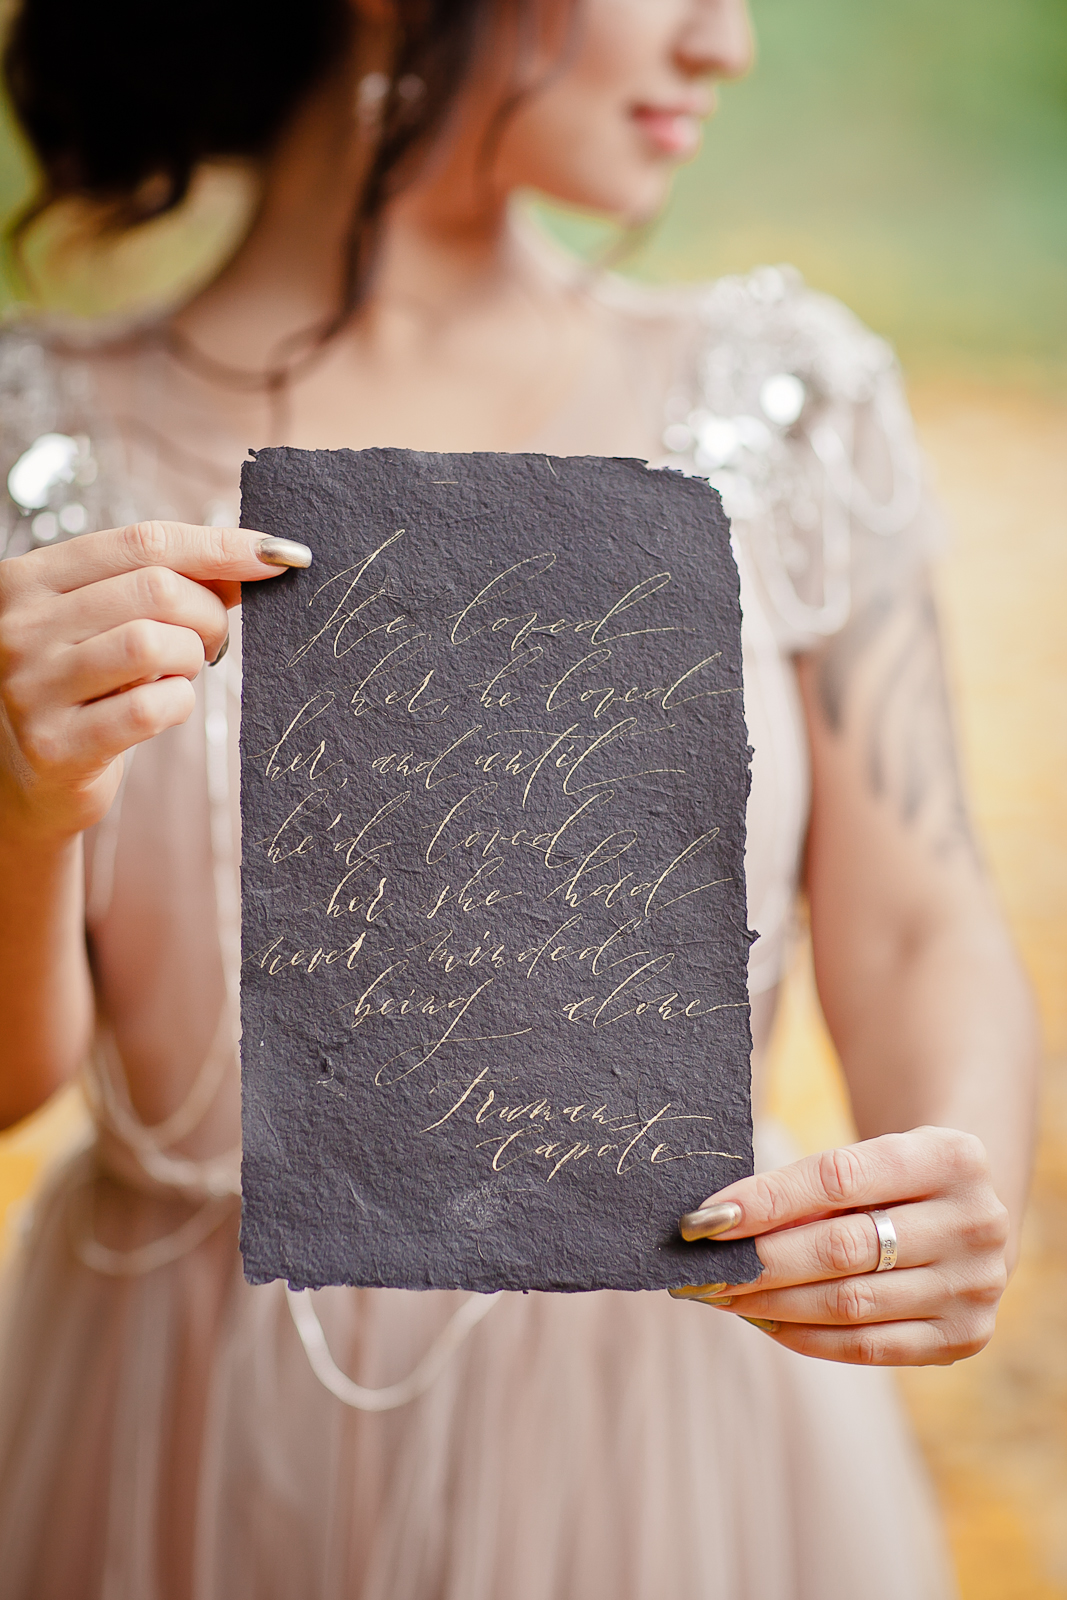 He loved
her, he loved
her, and until
he'd loved
her she had
never minded
being alone
Truman
Capote